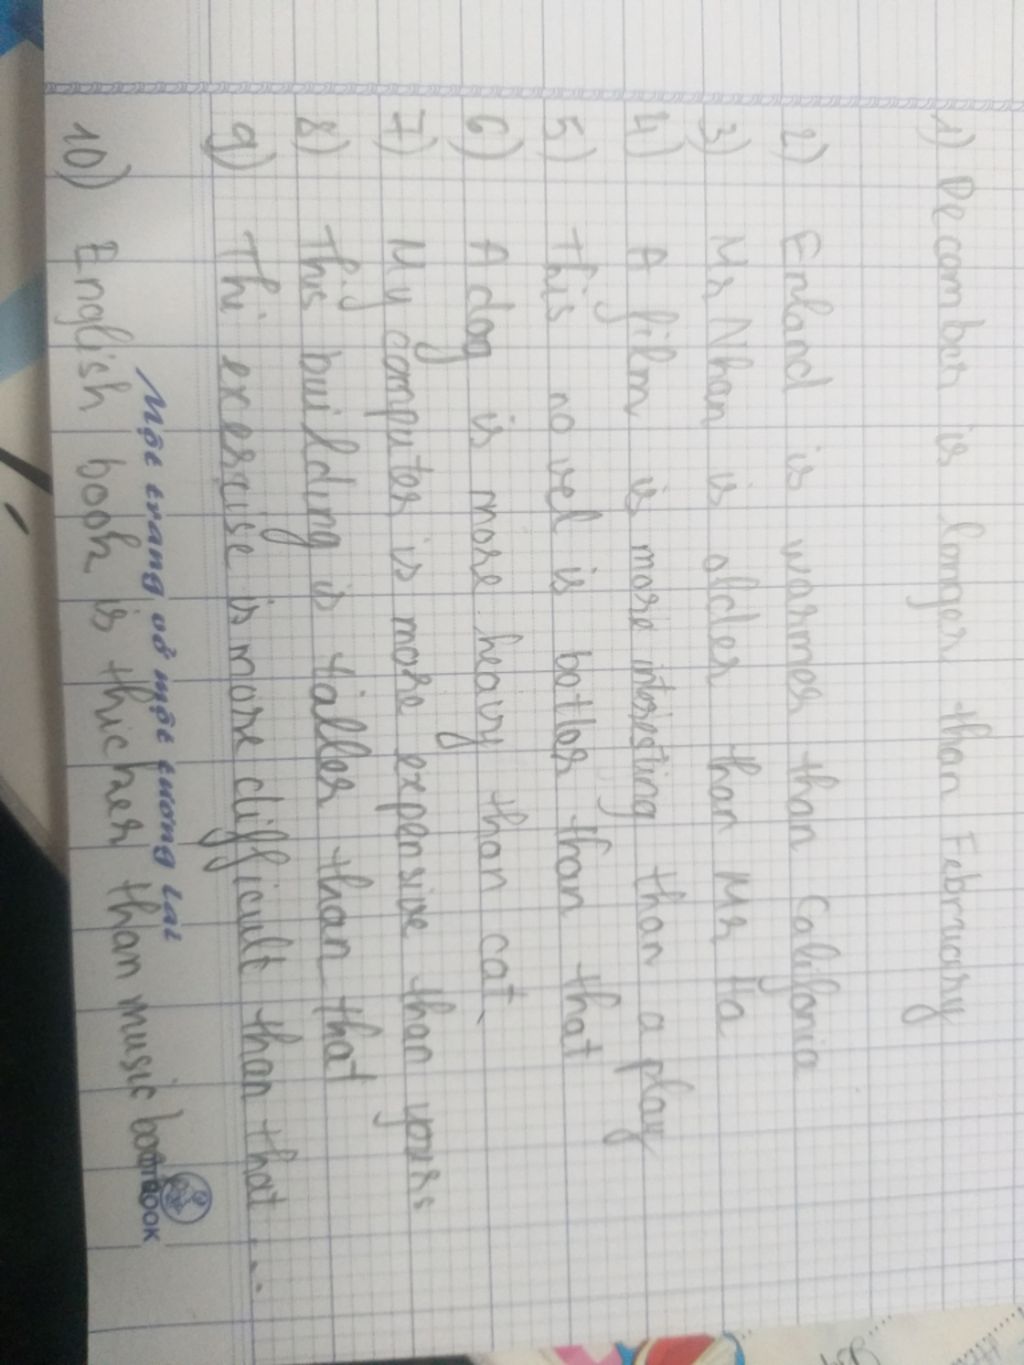 1) Decamber is longer than February
2) Enland is warmer than Califonia
3) Mr Nhan is older than Mr Ha
4) A film is more intresting than a play
5) This novel is botler than that
6) A dog is more heavy than cat
7) My computer is more expensive than yours
8) This building is taller than that
9) Thi exercise is more difficult than that ...
Một trang vở một tương lai
10) English book is thicker than music book